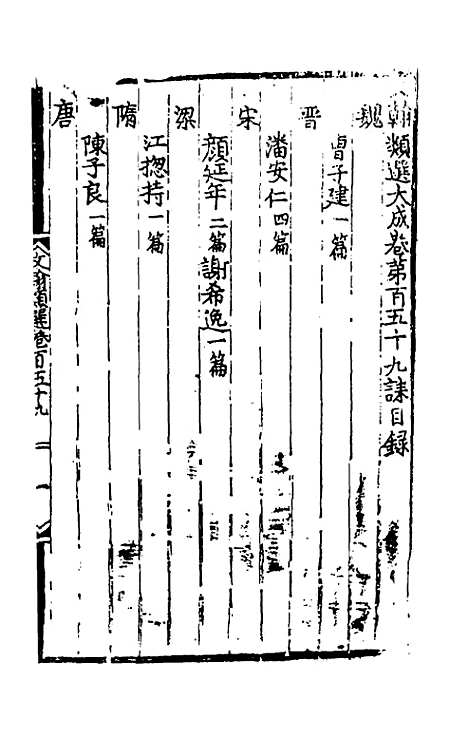 翰類選大成卷第百五十九誄目録
魏
曹子建一篇
晋
潘安仁四篇
宋
顔延年二篇謝希逸一篇
梁
江揔持一篇
隋
陳子良一篇
唐
文翰類選卷百五十九
一